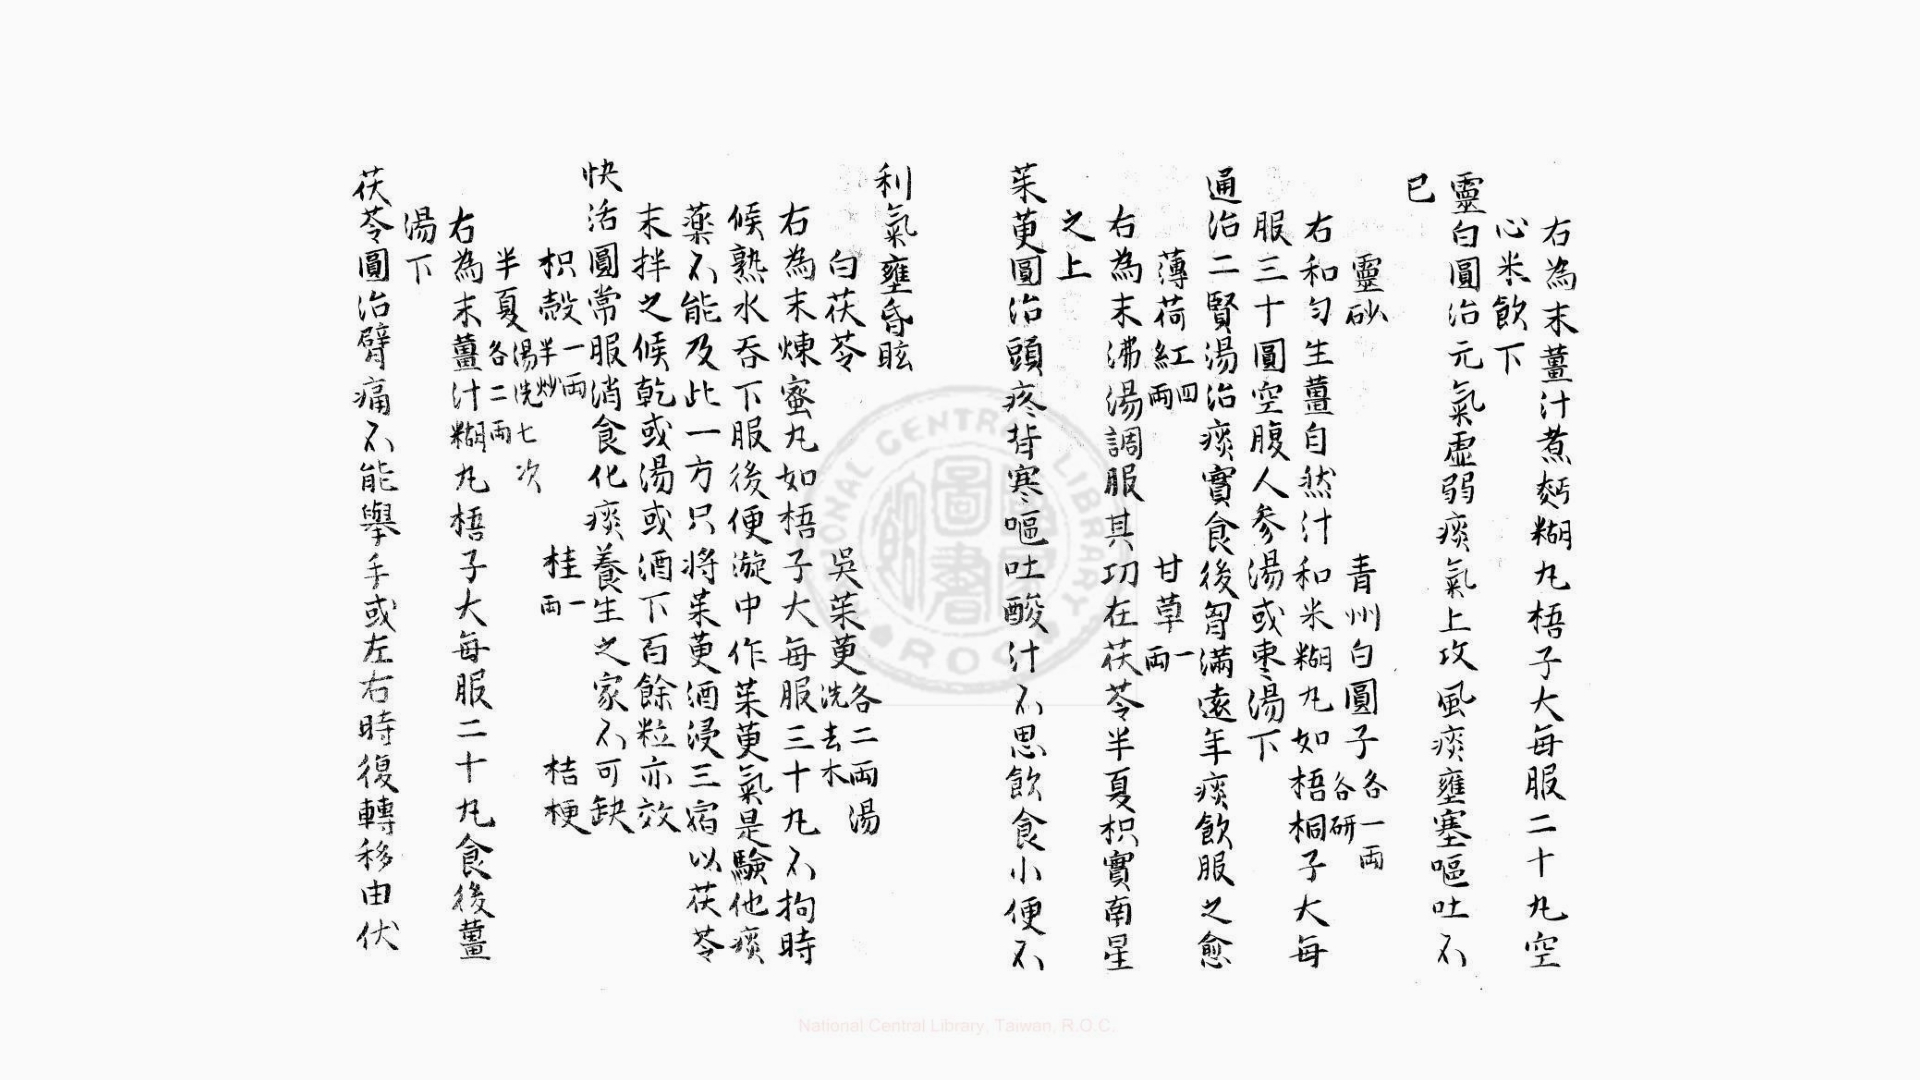 右為末薑汁煮麪糊丸梧子大每服二十九空
心米飲下
靈白圓治元氣虛弱痰氣上攻風痰壅塞嘔吐不
已
靈砂 青州白圓子各一兩各研
右和勻生薑自然汁和米糊丸如梧桐子大每
服三十圓空腹人參湯或棗湯下
通治二賢湯治痰實食後胷滿遠年痰飲服之愈
薄荷紅四兩 甘草一兩
右為末沸湯調服其功在茯苓半夏枳實南星
之上
茱萸圓治頭疼背寒嘔吐酸汁不思飲食小便不
利氣壅昏眩
白茯苓 吳茱萸各二兩湯洗去木
右為末煉蜜丸如梧子大每服三十九不拘時
候熟水吞下服後便漩中作茱萸氣是驗他痰
藥不能及此一方只將茱萸酒浸三宿以茯苓
末拌之候乾或湯或酒下百餘粒亦效
快活圓常服消食化痰養生之家不可缺
枳殼一兩半炒 桂一兩 桔梗
半夏湯洗七次各二兩
右為末薑汁糊丸梧子大每服二十丸食後薑
湯下
茯苓圓治臂痛不能舉手或左右時復轉移由伏
NATIONAL CENTRAL LIBRARY
R.O.C.
National Central Library, Taiwan, R.O.C.